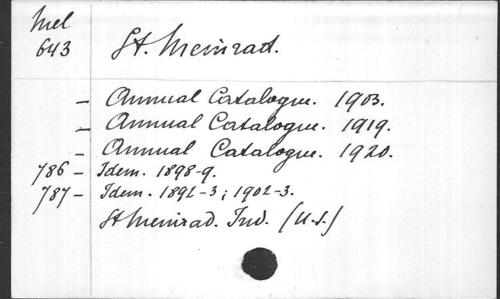 Mel
643
St. Meinrad.
- Annual Catalogue. 1903.
- Annual Catalogue. 1919.
- Annual Catalogue. 1920.
786 - Idem. 1898-9.
787 - Idem. 1892-3; 1902-3.
St Meinrad. Ind. (U.S.)